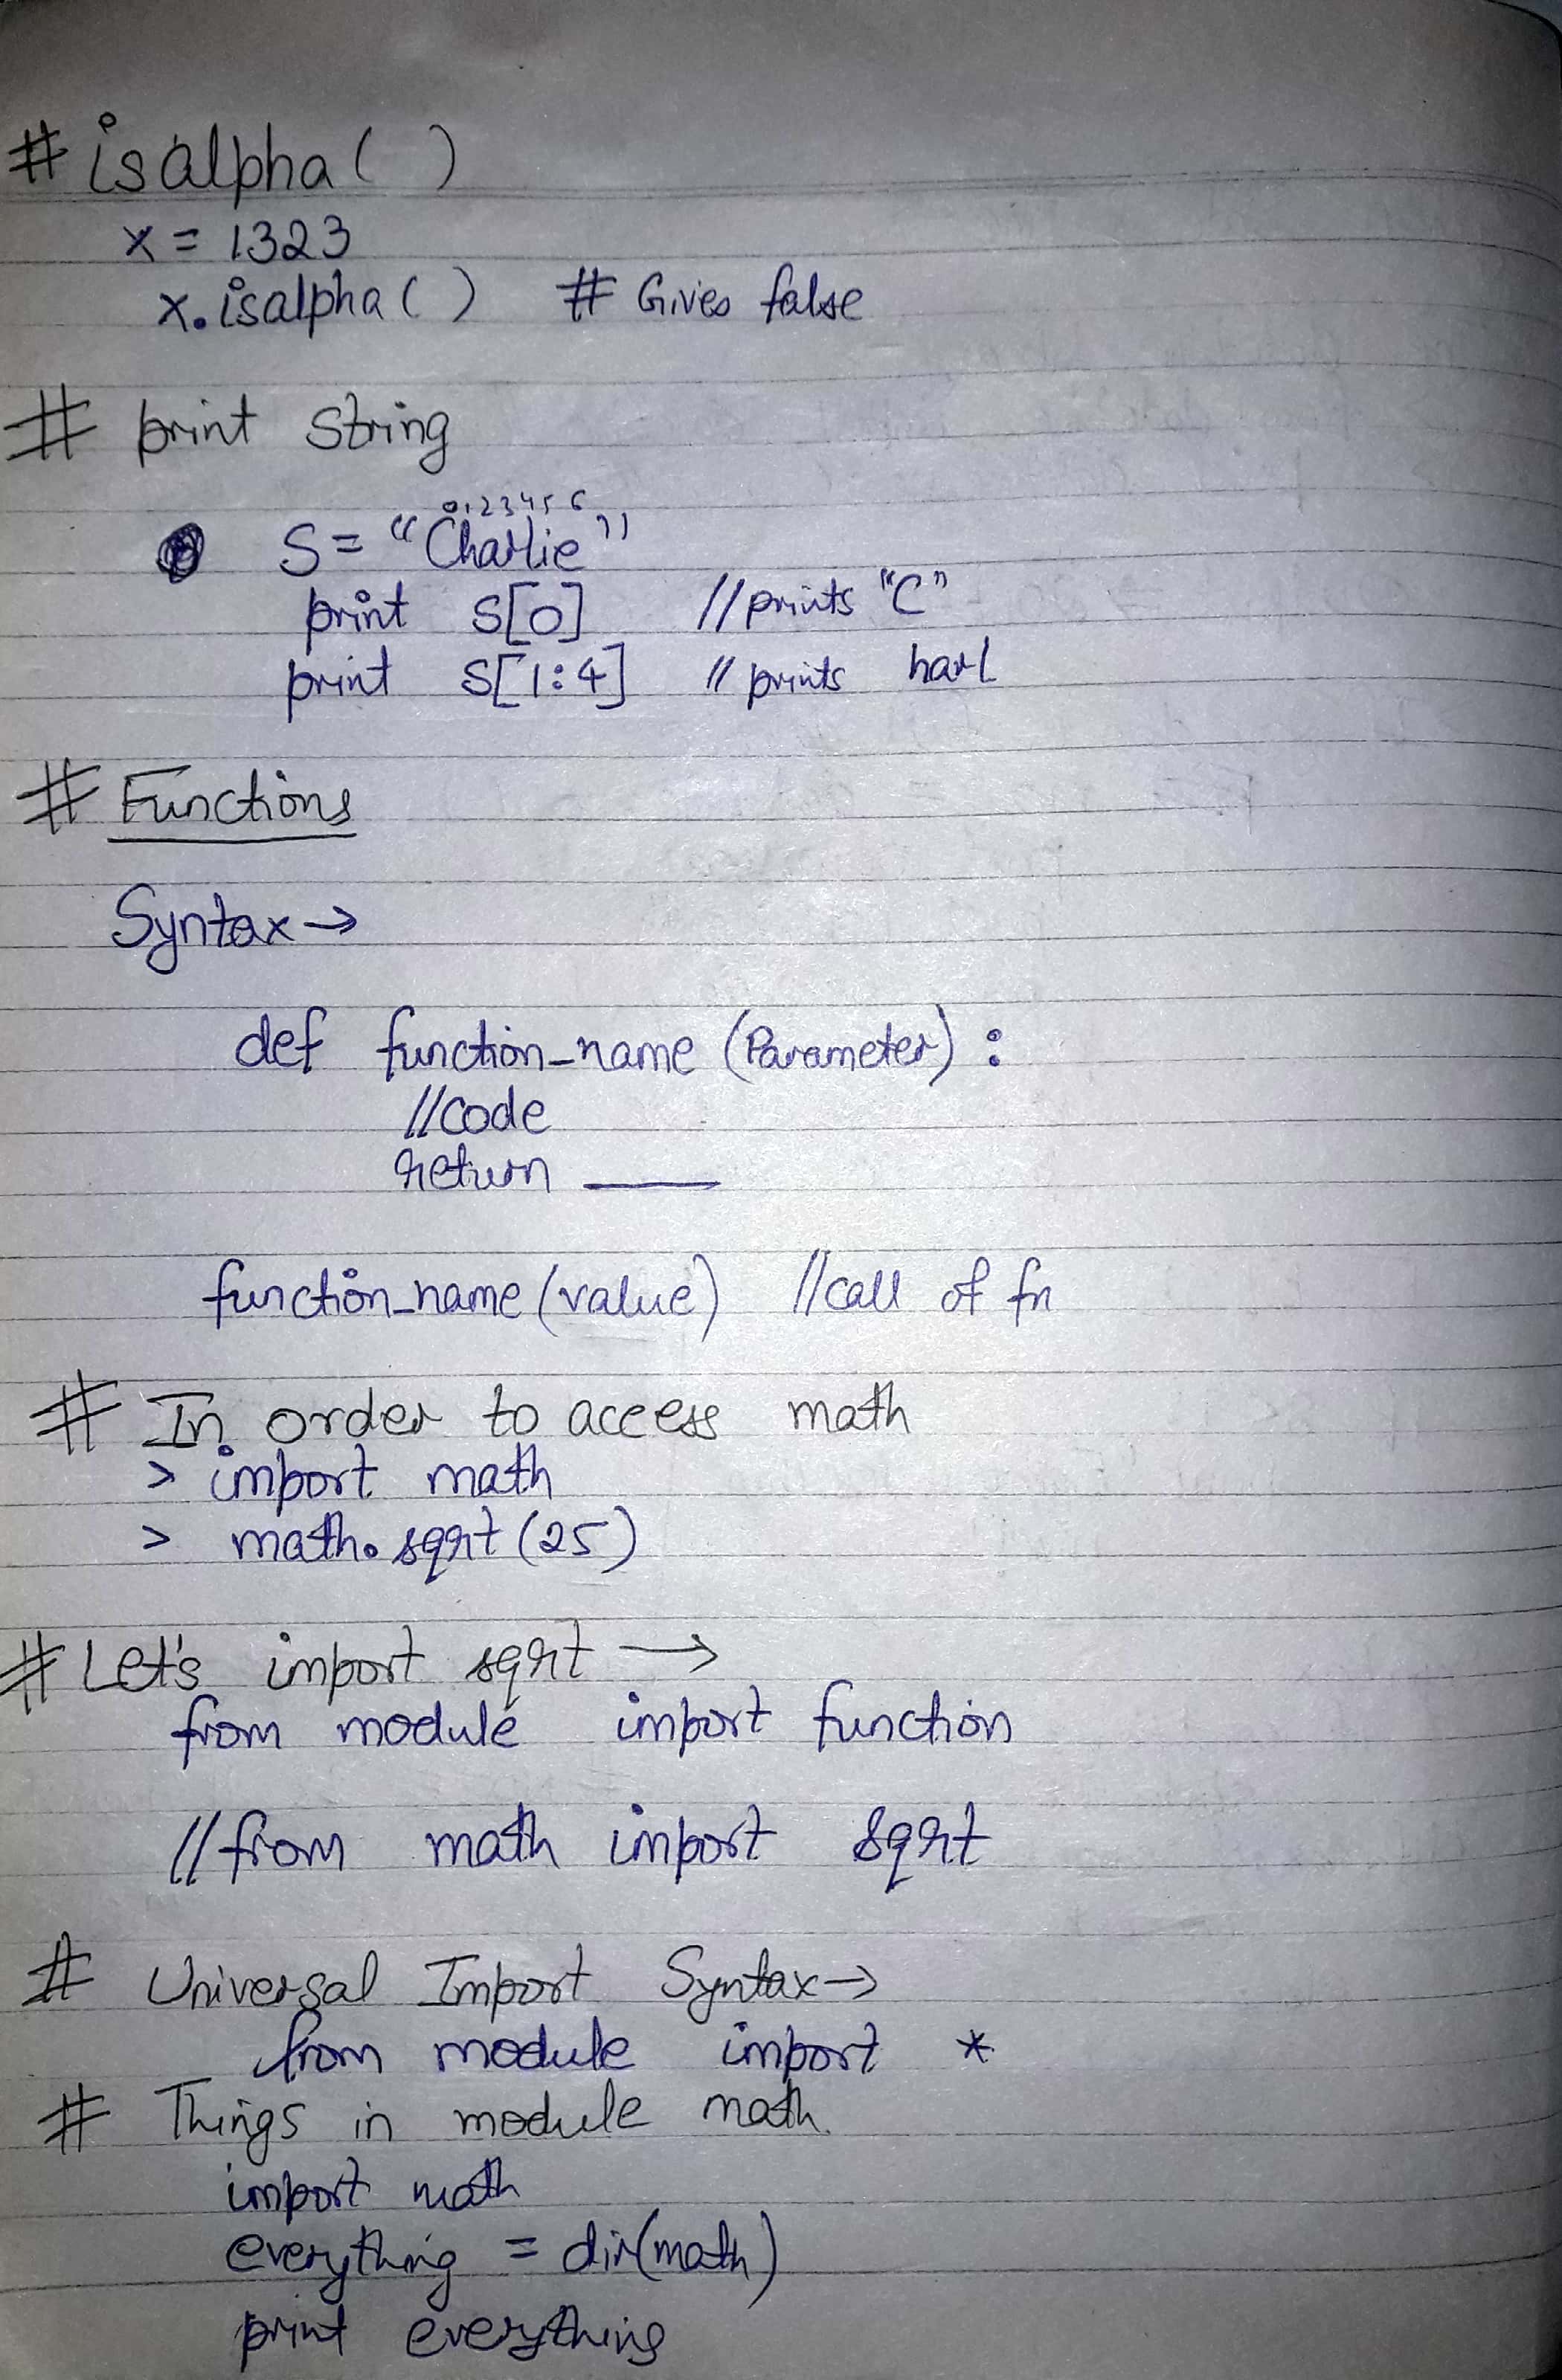 # isalpha( )
x = 1323
x.isalpha( ) # Gives false
# print string
0123456
S = "Charlie"
print s[0] //prints "C"
print s[1:4] // prints harl
# Functions
Syntax →
def function_name (Parameter) :
//code
return ____
function_name (value) //call of fn
# In order to access math
> import math
> math.sqrt (25)
# Let's import sqrt →
from module import function
//from math import sqrt
# Universal Import Syntax →
from module import *
# Things in module math.
import math
everything = dir(math)
print everything